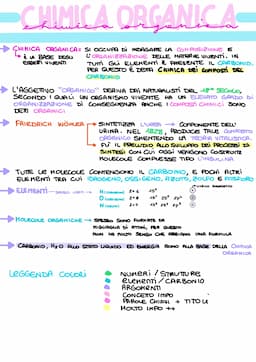 CHIMICA ORGANICA
chimica organica
CHIMICA ORGANICA: SI OCCUPA DI INDAGARE LA COMPOSIZIONE E
È LA BASE DEGLI L'ORGANIZZAZIONE DELLE MATERIE VIVENTI. IN
ESSERI VIVENTI TUTTI GLI ELEMENTI È PRESENTE IL CARBONIO,
PER QUESTO È DETTA CHIMICA DEI COMPOSTI DEL
CARBONIO
L'AGGETTIVO "ORGANICO" DERIVA DAI NATURALISTI DEL 18° SECOLO,
SECONDO I QUALI IN ORGANISMO VIVENTE HA UN ELEVATO GRADO DI
ORGANIZZAZIONE DI CONSEGUENZA ANCHE I COMPOSTI CHIMICI SONO
DETTI ORGANICI
FRIEDRICH WÖHLER SINTETIZZA L'UREA → COMPONENTE DELL'
URINA. NEL 1828, PRODUCE TALE COMPOSTO
ORGANICO SMENTENDO LA TEORIA VITALISTICA.
FU IL PRELUDIO ALLO SVILUPPO DEI PROCESSI DI
SINTESI CON CUI OGGI VENGONO COSTRUITE
MOLECOLE COMPLESSE TIPO L'INSULINA
TUTTE LE MOLECOLE CONTENGONO IL CARBONIO, E POCHI ALTRI
ELEMENTI TRA CUI IDROGENO, OSSIGENO, AZOTO, ZOLFO E FOSFORO
ELEMENTI
MOLECOLE ORGANICHE → SPESSO SONO FORMATE DA
MIGLIAIA DI ATOMI, PER QUESTO
NON HA MOLTO SENSO CHE ABBIANO UNA FORMULA
CARBONIO, H₂O ALLO STATO LIQUIDO ED ENERGIA SONO ALLA BASE DELLA CHIMICA
ORGANICA
LEGGENDA COLORI
NUMERI / STRUTTURE
ELEMENTI / CARBONIO
ARGOMENTI
CONCETTO IMPO
PAROLE CHIAVI + TITOLI
MOLTO IMPO ++